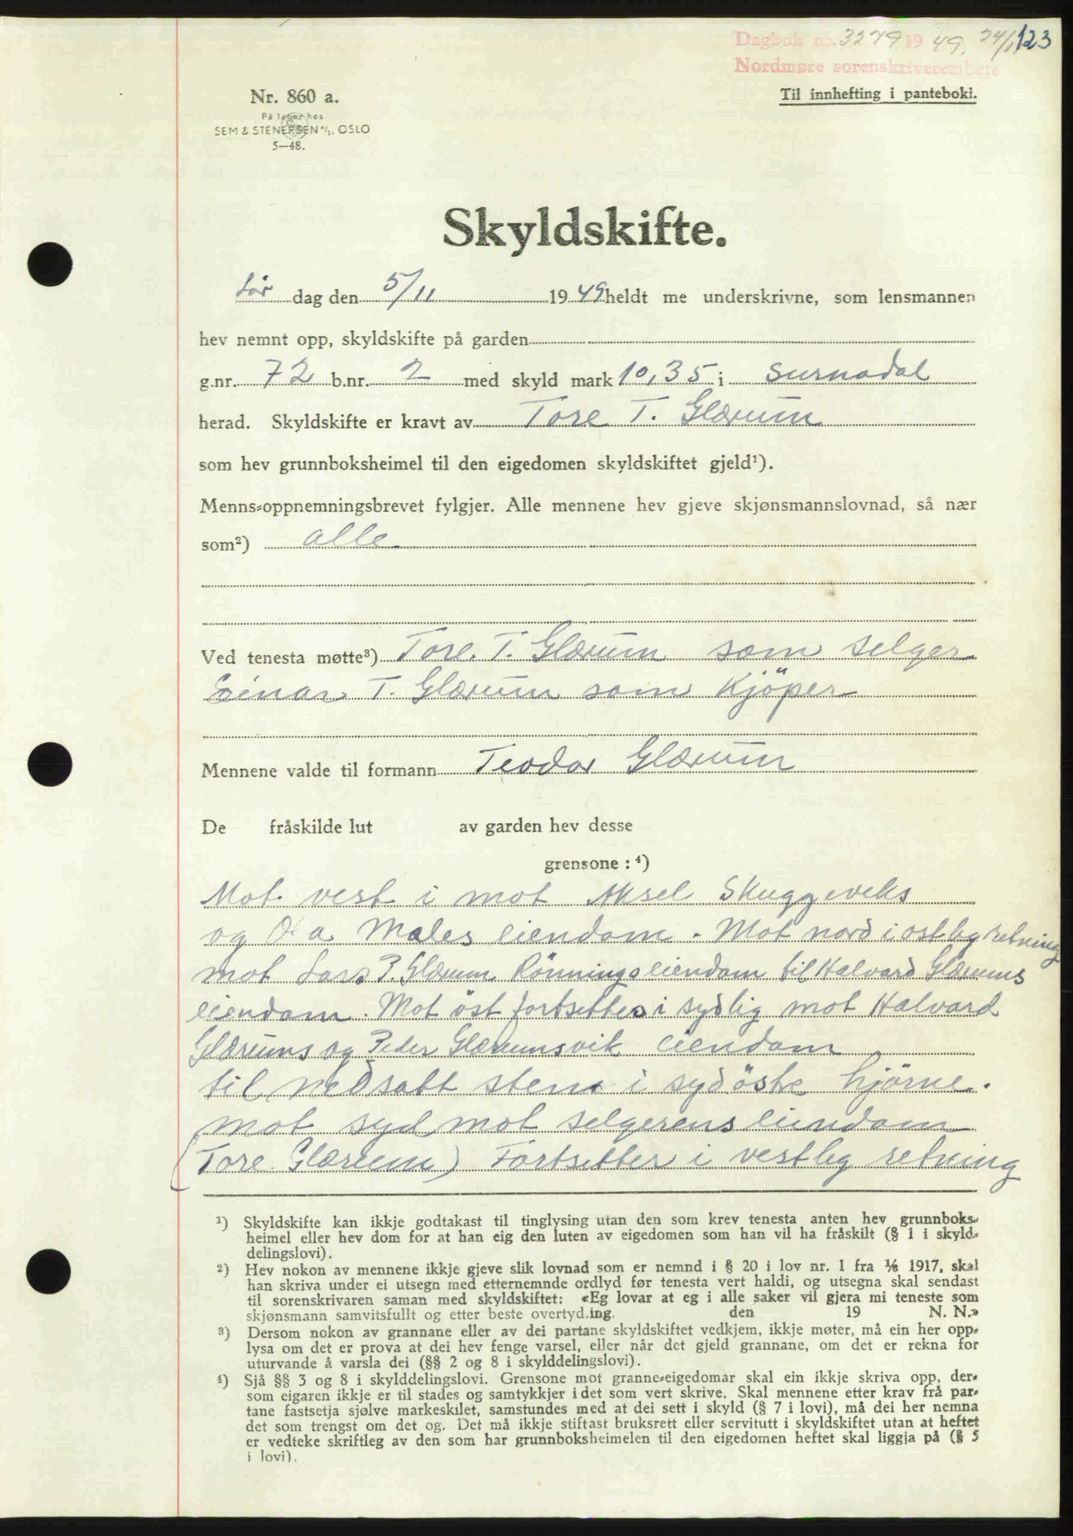 Dagbok nr. 3279 19 49. 24/11 123
Nordmøre sorenskriverembete
Til innhefting i panteboki.
Nr. 860 a.
På lager hos
SEM & STENERSEN A/S. OSLO
5—48.
Skyldskifte.
Lør dag den 5/11 19 49 heldt me underskrivne, som lensmannen
hev nemnt opp, skyldskifte på garden
g.nr. 72 b.nr. 2 med skyld mark 10,35 i Surnadal
herad. Skyldskifte er kravt av Tore T. Glærum
som hev grunnboksheimel til den eigedomen skyldskiftet gjeld¹).
Menns-oppnemningsbrevet fylgjer. Alle mennene hev gjeve skjønsmannslovnad, så nær
som²) alle
Ved tenesta møtte³) Tore. T. Glærum som selger
Einar T. Glærum som Kjöper
Mennene valde til formann Teodor Glærum
De fråskilde lut av garden hev desse
grensone : ⁴)
Mot vest i mot Aksel Skuggeviks
og Ola Moles eiendom. Mot nord i ostlig retning
mot Lars P. Glærum Rönnings eiendom til Halvard Glærums
eiendom. Mot öst fortsettes i sydlig mot Halvard
Glærums og Peder Glærumsvik eiendom
til nedsatt sten i sydöstre hjörne.
mot syd mot selgerens eiendom
(Tore Glærum) Fortsetter i vestlig retning
¹) Skyldskifte kan ikkje godtakast til tinglysing utan den som krev tenesta anten hev grunnboks-
heimel eller hev dom for at han eig den luten av eigedomen som han vil ha fråskilt (§ 1 i skyld-
delingslovi).
²) Hev nokon av mennene ikkje gjeve slik lovnad som er nemnd i § 20 i lov nr. 1 fra 1/6 1917, skal
han skriva under ei utsegn med etternemnde ordlyd før tenesta vert haldi, og utsegna skal sendast
til sorenskrivaren saman med skyldskiftet: «Eg lovar at eg i alle saker vil gjera mi teneste som
skjønsmann samvitsfullt og etter beste overtyding. den 19 N. N.»
³) Dersom nokon av grannane eller av dei partane skyldskiftet vedkjem, ikkje møter, må ein her opp-
lysa om det er prova at dei hev fenge varsel, eller når det gjeld grannane, om det er rekna for
uturvande å varsla dei (§§ 2 og 8 i skylddelingslovi).
⁴) Sjå §§ 3 og 8 i skylddelingslovi. Grensone mot granne-eigedomar skal ein ikkje skriva opp, der-
som eigaren ikkje er til stades og samtykkjer i det som vert skrive. Skal mennene etter krav frå par-
tane fastsetja sjølve markeskilet, samstundes med at dei sett i skyld (§ 7 i lovi), må dei her nemna
det som trengst om det og. Det må ikkje stiftast bruksrett eller servitutt i skyldskiftet utan at heftet
er vedteke skriftleg av den som har grunnboksheimelen til den eigedomen heftet skal liggja på (§ 5
i lovi).